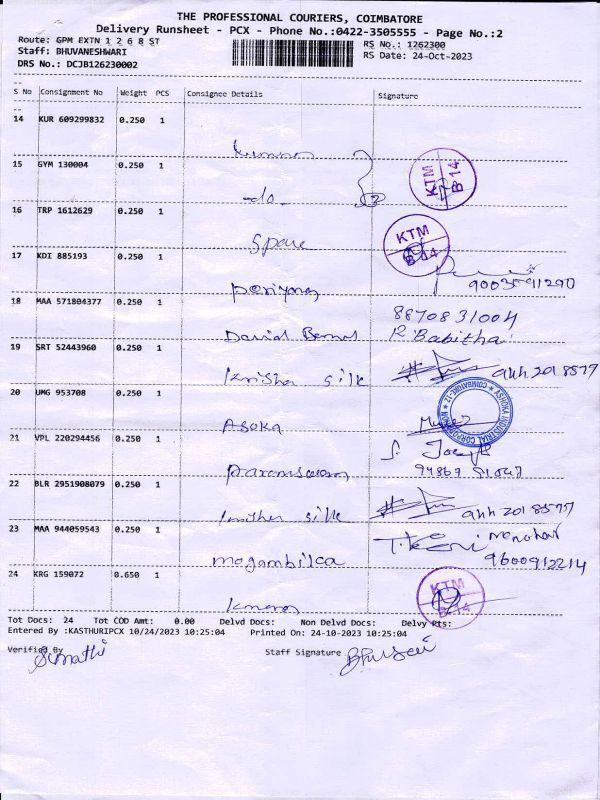 THE PROFESSIONAL COURIERS, COIMBATORE
Delivery Runsheet - PCX - Phone No.:0422-3505555 - Page No.:2
Route: GPM EXTN 1 2 6 8 ST
RS No.: 1262300
Staff: BHUVANESHWARI
RS Date: 24-Oct-2023
DRS No.: DCJB126230002
S No Consignment No Weight PCS Consignee Details Signature
14 KUR 609299832 0.250 1
15 GYM 130004 0.250 1 -do-
KTM
B 14
16 TRP 1612629 0.250 1 Spare
KTM
B 14
17 KDI 885193 0.250 1
18 MAA 571804377 0.250 1 David
8870831004
R. Babitha
19 SRT 52443960 0.250 1 silk
20 UMG 953708 0.250 1 Asoka
ASHOKA INDUSTRIAL CORPORATION COIMBATORE-12
21 VPL 220294456 0.250 1
S. Joseph
22 BLR 2951908079 0.250 1 silk
23 MAA 944059543 0.250 1 mogambikca
manohar
9600912214
24 KRG 159072 0.650 1
KTM
B 14
Tot Docs: 24 Tot COD Amt: 0.00 Delvd Docs: Non Delvd Docs: Delvy Pts:
Entered By :KASTHURIPCX 10/24/2023 10:25:04 Printed On: 24-10-2023 10:25:04
Verified By Staff Signature
Sumathi